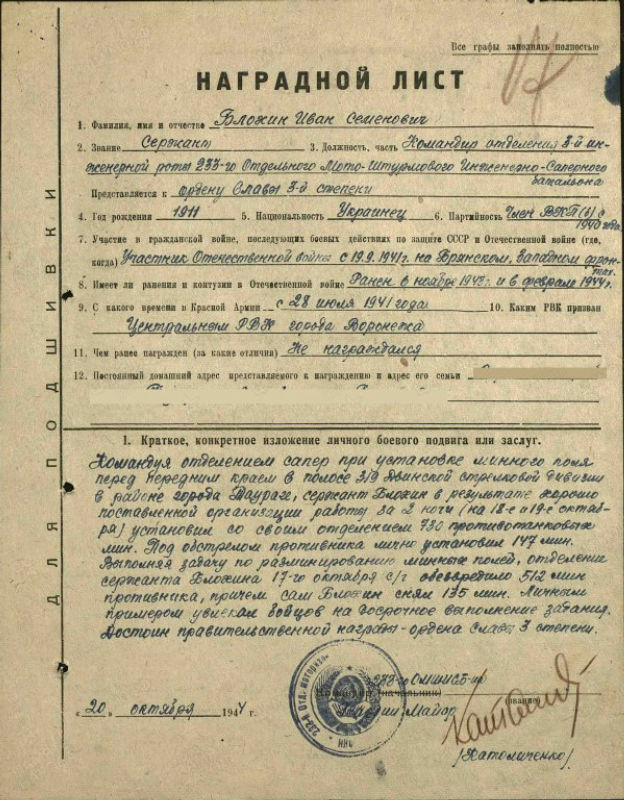 Все графы заполнять полностью
НАГРАДНОЙ ЛИСТ
1. Фамилия, имя и отчество Блохин Иван Семенович
2. Звание Сержант 3. Должность, часть Командир отделения 3-й ин-
женерной роты 233-го Отдельного Мото-Штурмового Инженерно-Саперного
батальона
Представляется к ордену Славы 3-й степени
4. Год рождения 1911 5. Национальность Украинец 6. Партийность Член ВКП(б) с
1940 года
7. Участие в гражданской войне, последующих боевых действиях по защите СССР и Отечественной войне (где,
когда) Участник Отечественной войны с 19.9.1941г. на Брянском, Западном фрон-
тах.
8. Имеет ли ранения и контузии в Отечественной войне Ранен в ноябре 1943г и в феврале 1944г.
9. С какого времени в Красной Армии с 28 июля 1941 года 10. Каким РВК призван
Центральным РВК города Воронежа
11. Чем ранее награжден (за какие отличия) Не награждался
12. Постоянный домашний адрес представляемого к награждению и адрес его семьи
ДЛЯ ПОДШИВКИ
1. Краткое, конкретное изложение личного боевого подвига или заслуг.
Командуя отделением сапер при установке минного поля
перед передним краем в полосе 319 Двинской стрелковой дивизии
в районе города Таураге, сержант Блохин в результате хорошо
поставленной организации работы за 2 ночи (на 18-е и 19-е октяб-
ря) установил со своим отделением 730 противотанковых
мин. Под обстрелом противника лично установил 147 мин.
Выполняя задачу по разминированию минных полей, отделение
сержанта Блохина 17-го октября с/г обезвредило 512 мин
противника, причем сам Блохин снял 135 мин. Личным
примером увлекал бойцов на досрочное выполнение задания.
Достоин правительственной награды - ордена Славы 3 степени.
233-го ОМШИСБ-на
Командир (начальник)
Гвардии Майор (звание)
« 20 » октября 1944 г.
/Католиченко/